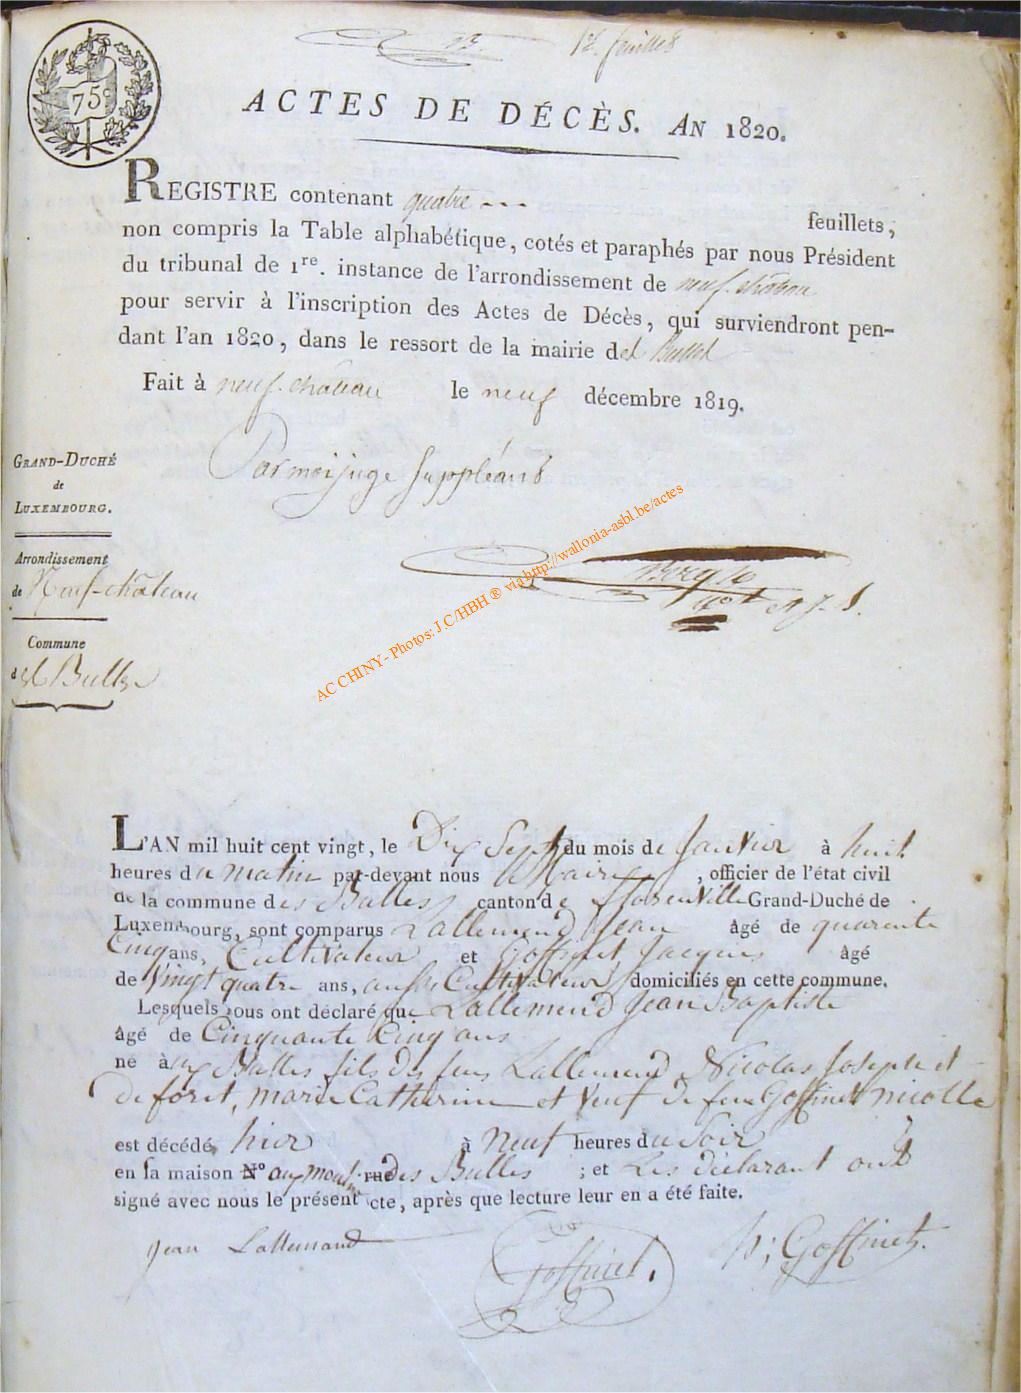 1er feuillet
75c
ACTES DE DÉCÈS. AN 1820.
REGISTRE contenant quatre feuillets,
non compris la Table alphabétique, cotés et paraphés par nous Président
du tribunal de 1re. instance de l'arrondissement de neuf-château
pour servir à l'inscription des Actes de Décès, qui surviendront pen-
dant l'an 1820, dans le ressort de la mairie de
Fait à neuf-château le neuf décembre 1819.
Par moi juge Suppléant
GRAND-DUCHÉ
de
LUXEMBOURG.
Arrondissement
de Neuf-château
Commune
AC CHINY - Photos: J.C/HBH ® via http://wallonia-asbl.be/actes
L'AN mil huit cent vingt, le Dix Sept du mois de Janvier à huit
heures du matin par-devant nous Maire, officier de l'état civil
de la commune des Bulles canton de florenville Grand-Duché de
Luxembourg, sont comparus Lallemend Jean âgé de quarente
Cinq ans, Cultivateur et Goffinet Jacques âgé
de vingt quatre ans, aussi Cultivateur domiciliés en cette commune.
Lesquels nous ont déclaré que Lallemend Jean Baptiste
âgé de Cinquante Cinq ans
né à aux Bulles fils des feus Lallemend Nicolas Joseph et
deforêt, marie Catherine et veuf de feue Goffinet nicolle
est décédé hier à neuf heures du Soir
en sa maison N° rue des Bulles ; et Les déclarant ont
signé avec nous le présent acte, après que lecture leur en a été faite.
jean Lallemand Goffinet. Goffinet.